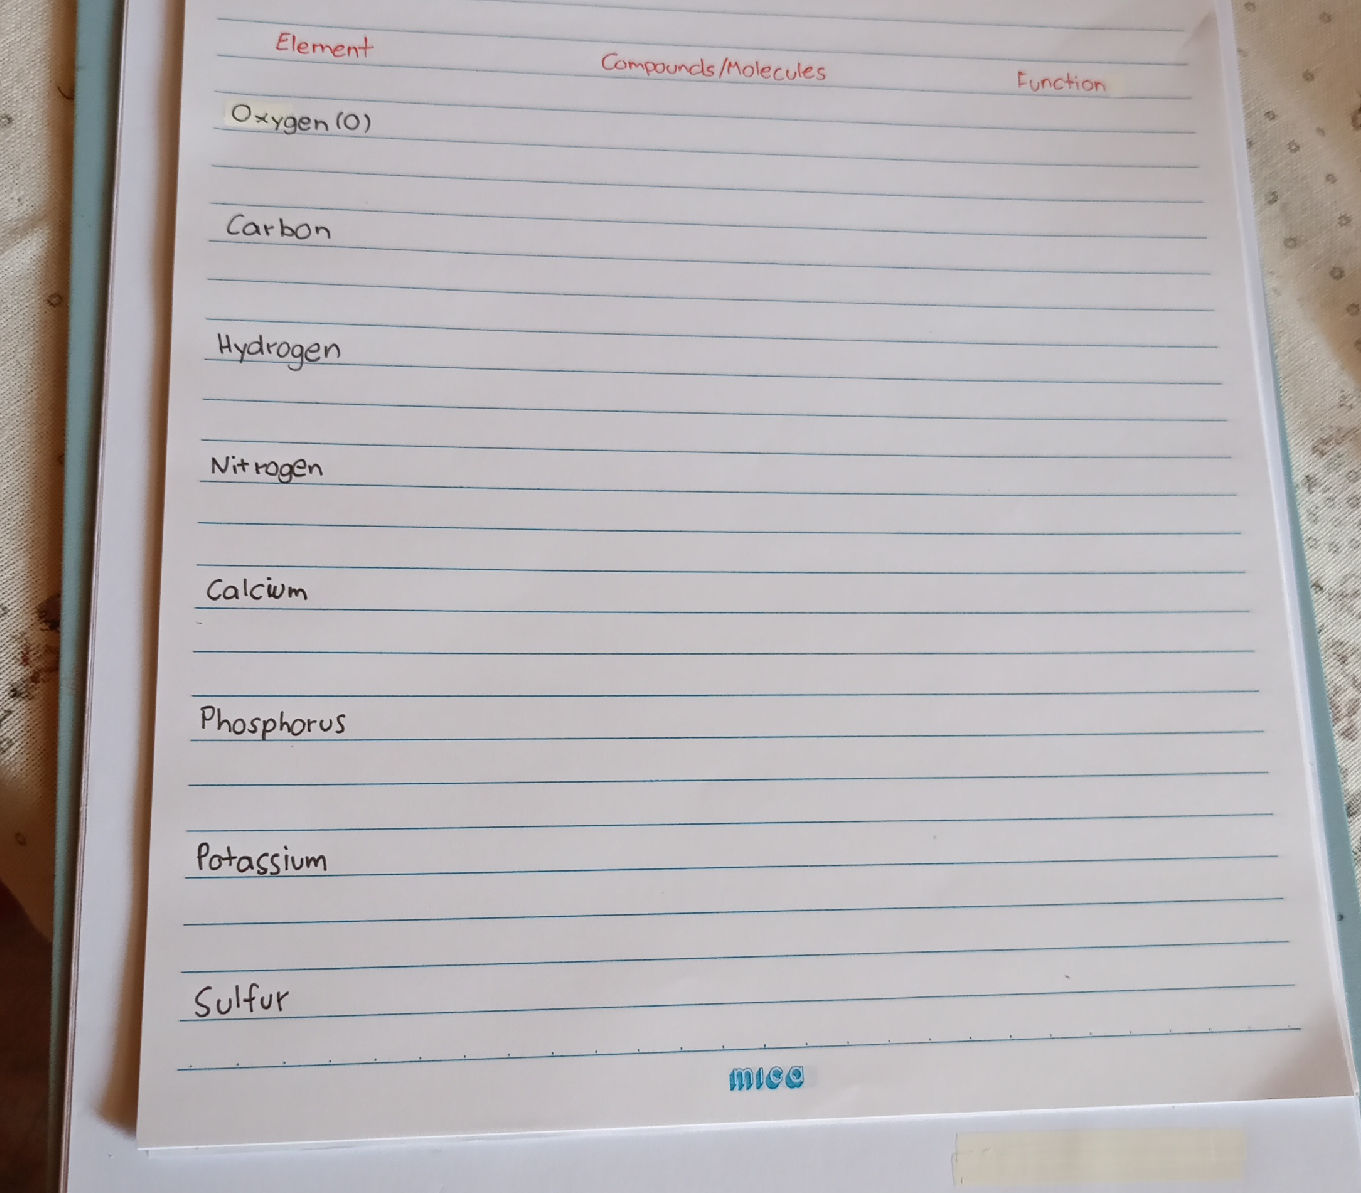 Element Compounds/Molecules Function
Oxygen (O)
Carbon
Hydrogen
Nitrogen
Calcium
Phosphorus
Potassium
Sulfur
mica